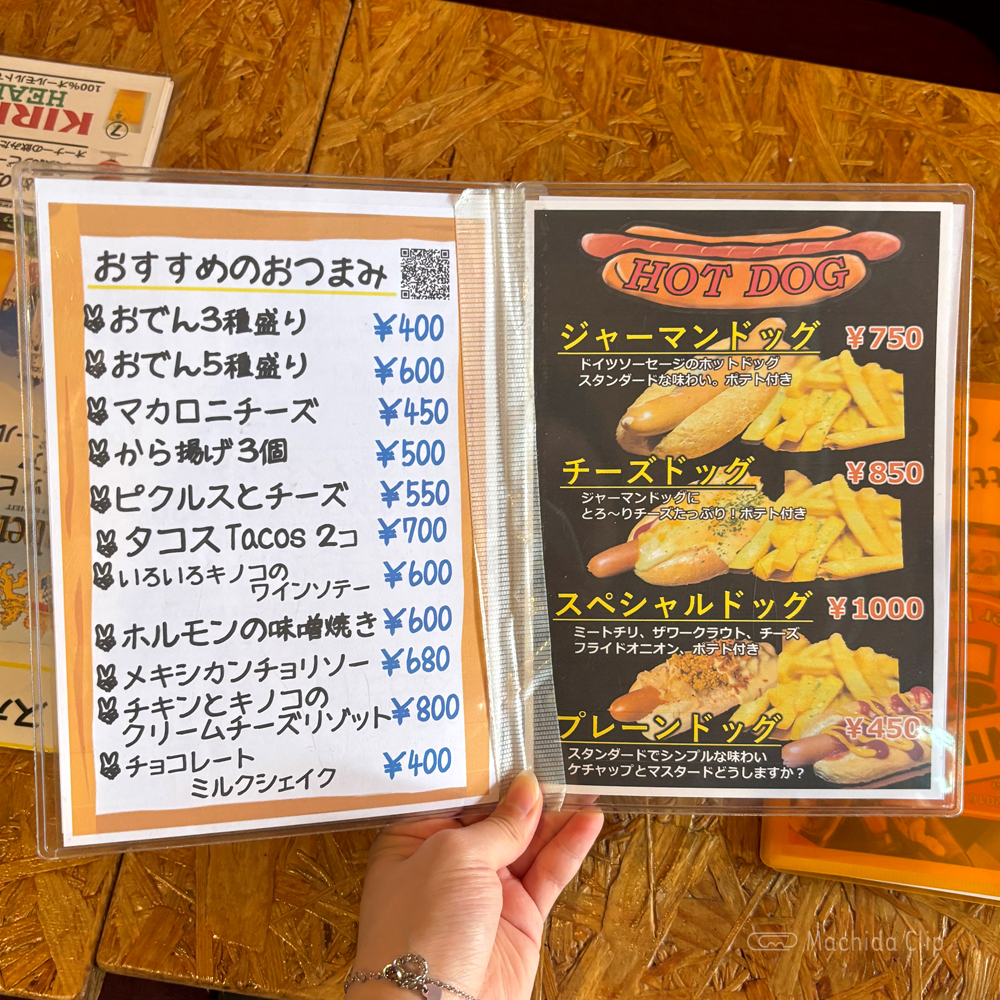 おすすめのおつまみ
おでん3種盛り ¥400
おでん5種盛り ¥600
マカロニチーズ ¥450
から揚げ3個 ¥500
ピクルスとチーズ ¥550
タコスTacos 2コ ¥700
いろいろキノコの
ワインソテー ¥600
ホルモンの味噌焼き ¥600
メキシカンチョリソー ¥680
チキンとキノコの
クリームチーズリゾット ¥800
チョコレート
ミルクシェイク ¥400
HOT DOG
ジャーマンドッグ ¥750
ドイツソーセージのホットドッグ
スタンダードな味わい。ポテト付き
チーズドッグ ¥850
ジャーマンドッグに
とろ〜りチーズたっぷり!ポテト付き
スペシャルドッグ ¥1000
ミートチリ、ザワークラウト、チーズ
フライドオニオン、ポテト付き
プレーンドッグ ¥450
スタンダードでシンプルな味わい
ケチャップとマスタードどうしますか?
100%オールモルト
KIRI
HEA
⑦
Machida Clip